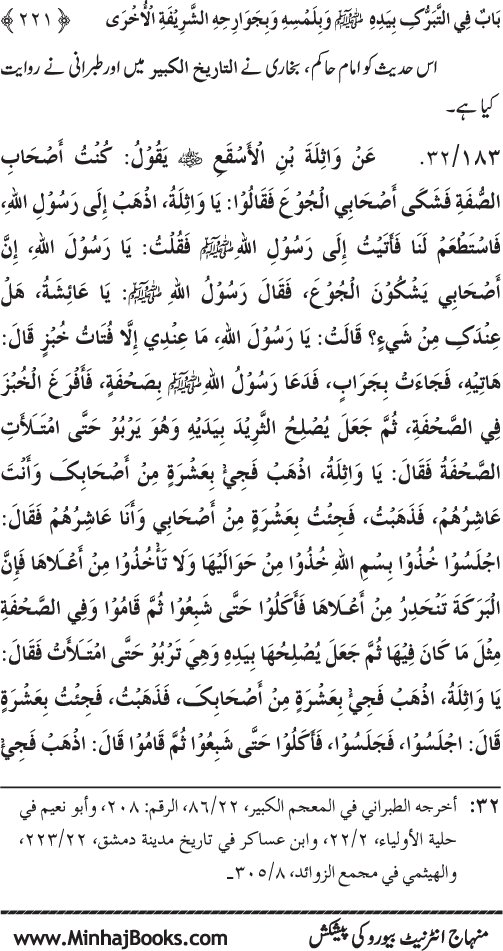 بَابٌ فِي التَّبَرُّکِ بِيَدِهِ ﷺ وَبِلَمْسِهِ وَبِجَوَارِحِهِ الشَّرِيْفَةِ الْأُخْرَی ﴿۲۲۱﴾
اس حدیث کو امام حاکم، بخاری نے التاریخ الکبیر میں اور طبرانی نے روایت
کیا ہے۔
۳۲/۱۸۳. عَنْ وَاثِلَةَ بْنِ الْأَسْقَعِ ﷺ يَقُوْلُ: کُنْتُ أَصْحَابِ
الصُّفَّةِ فَشَکَی أَصْحَابِي الْجُوْعَ فَقَالُوْا: يَا وَاثِلَةُ، اذْهَبْ إِلَی رَسُوْلِ اللهِ،
فَاسْتَطْعِمْ لَنَا فَأَتَيْتُ إِلَی رَسُوْلِ اللهِ ﷺ فَقُلْتُ: يَا رَسُوْلَ اللهِ، إِنَّ
أَصْحَابِي يَشْکُوْنَ الْجُوْعَ، فَقَالَ رَسُوْلُ اللهِ ﷺ: يَا عَائِشَةُ، هَلْ
عِنْدَکِ مِنْ شَيءٍ؟ قَالَتْ: يَا رَسُوْلَ اللهِ، مَا عِنْدِي إِلَّا فُتَاتُ خُبْزٍ قَالَ:
هَاتِيْهِ، فَجَاءَتْ بِجَرَابٍ، فَدَعَا رَسُوْلُ اللهِ ﷺ بِصَحْفَةٍ، فَأَفْرَغَ الْخُبْزَ
فِي الصَّحْفَةِ، ثُمَّ جَعَلَ يُصْلِحُ الثَّرِيْدَ بِيَدَيْهِ وَهُوَ يَرْبُوْ حَتَّی امْتَـلَأَتِ
الصَّحْفَةُ فَقَالَ: يَا وَاثِلَةُ، اذْهَبْ فَجِيئْ بِعَشَرَةٍ مِنْ أَصْحَابِکَ وَأَنْتَ
عَاشِرُهُمْ، فَذَهَبْتُ، فَجِئْتُ بِعَشَرَةٍ مِنْ أَصْحَابِي وَأَنَا عَاشِرُهُمْ فَقَالَ:
اجْلَسُوْا خُذُوْا بِسْمِ اللهِ خُذُوْا مِنْ حَوَالَيْهَا وَلَا تَأْخُذُوْا مِنْ أَعْـلَاهَا فَإِنَّ
الْبَرَکَةَ تَنْحَدِرُ مِنْ أَعْـلَاهَا فَأَکَلُوْا حَتَّی شَبِعُوْا ثُمَّ قَامُوْا وَفِي الصَّحْفَةِ
مِثْلَ مَا کَانَ فِيْهَا ثُمَّ جَعَلَ يُصْلِحُهَا بِيَدِهِ وَهِيَ تَرْبُوْ حَتَّی امْتَـلَأَتْ فَقَالَ:
يَا وَاثِلَةُ، اذْهَبْ فَجِيئْ بِعَشَرَةٍ مِنْ أَصْحَابِکَ، فَذَهَبْتُ، فَجِئْتُ بِعَشَرَةٍ
قَالَ: اجْلَسُوْا، فَجَلَسُوْا، فَأَکَلُوْا حَتَّی شَبِعُوْا ثُمَّ قَامُوْا قَالَ: اذْهَبْ فَجِيئْ
۳۲: أخرجه الطبراني في المعجم الکبير، ۲۲/۸۶، الرقم: ۲۰۸، وأبو نعيم في
حلية الأولياء، ۲/۲۲، وابن عساکر في تاريخ مدينة دمشق، ۲۲/۲۲۳،
والهيثمي في مجمع الزوائد، ۸/۳۰۵۔
منہاج انٹرنیٹ بیورو کی پیشکش www.MinhajBooks.com